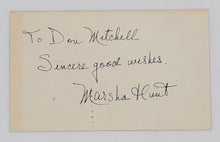 To Don Mitchell
Sincere good wishes.
Marsha Hunt